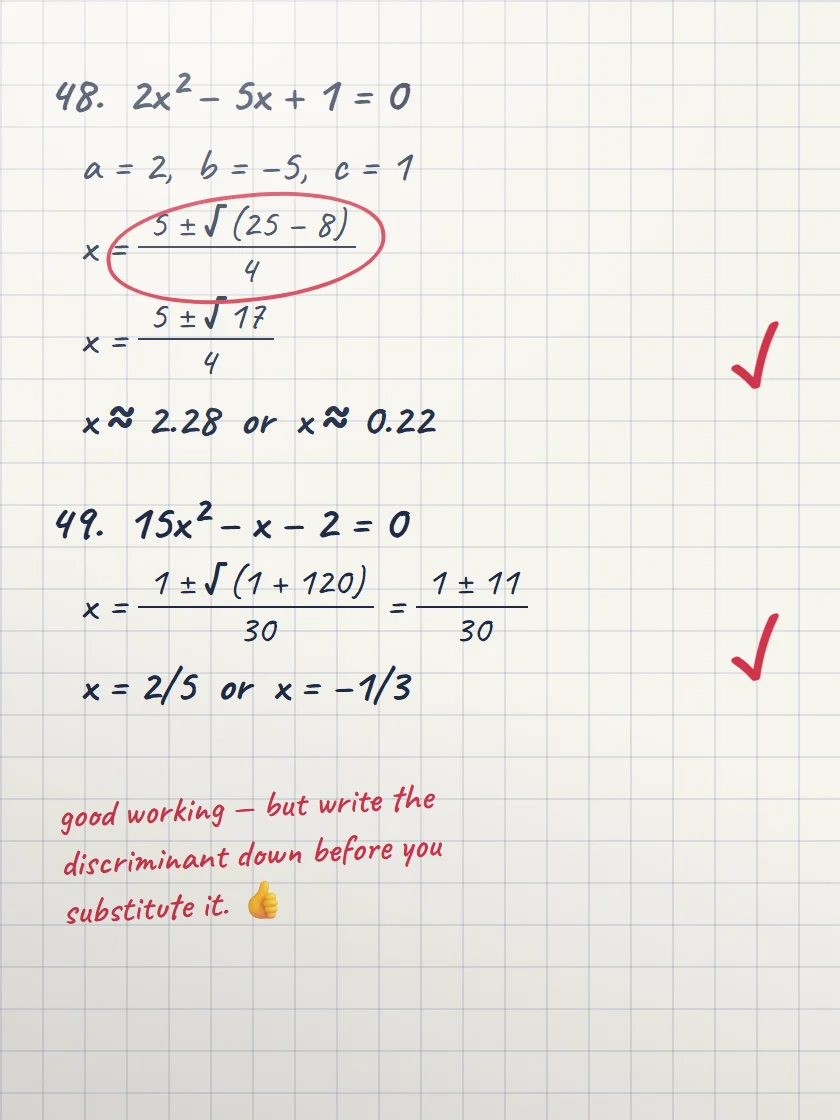 48. 2x² – 5x + 1 = 0
a = 2, b = –5, c = 1
x = (5 ± √(25 – 8))/4
x = (5 ± √17)/4
x ≈ 2.28 or x ≈ 0.22
49. 15x² – x – 2 = 0
x = (1 ± √(1 + 120))/30 = (1 ± 11)/30
x = 2/5 or x = –1/3
good working — but write the
discriminant down before you
substitute it. 👍